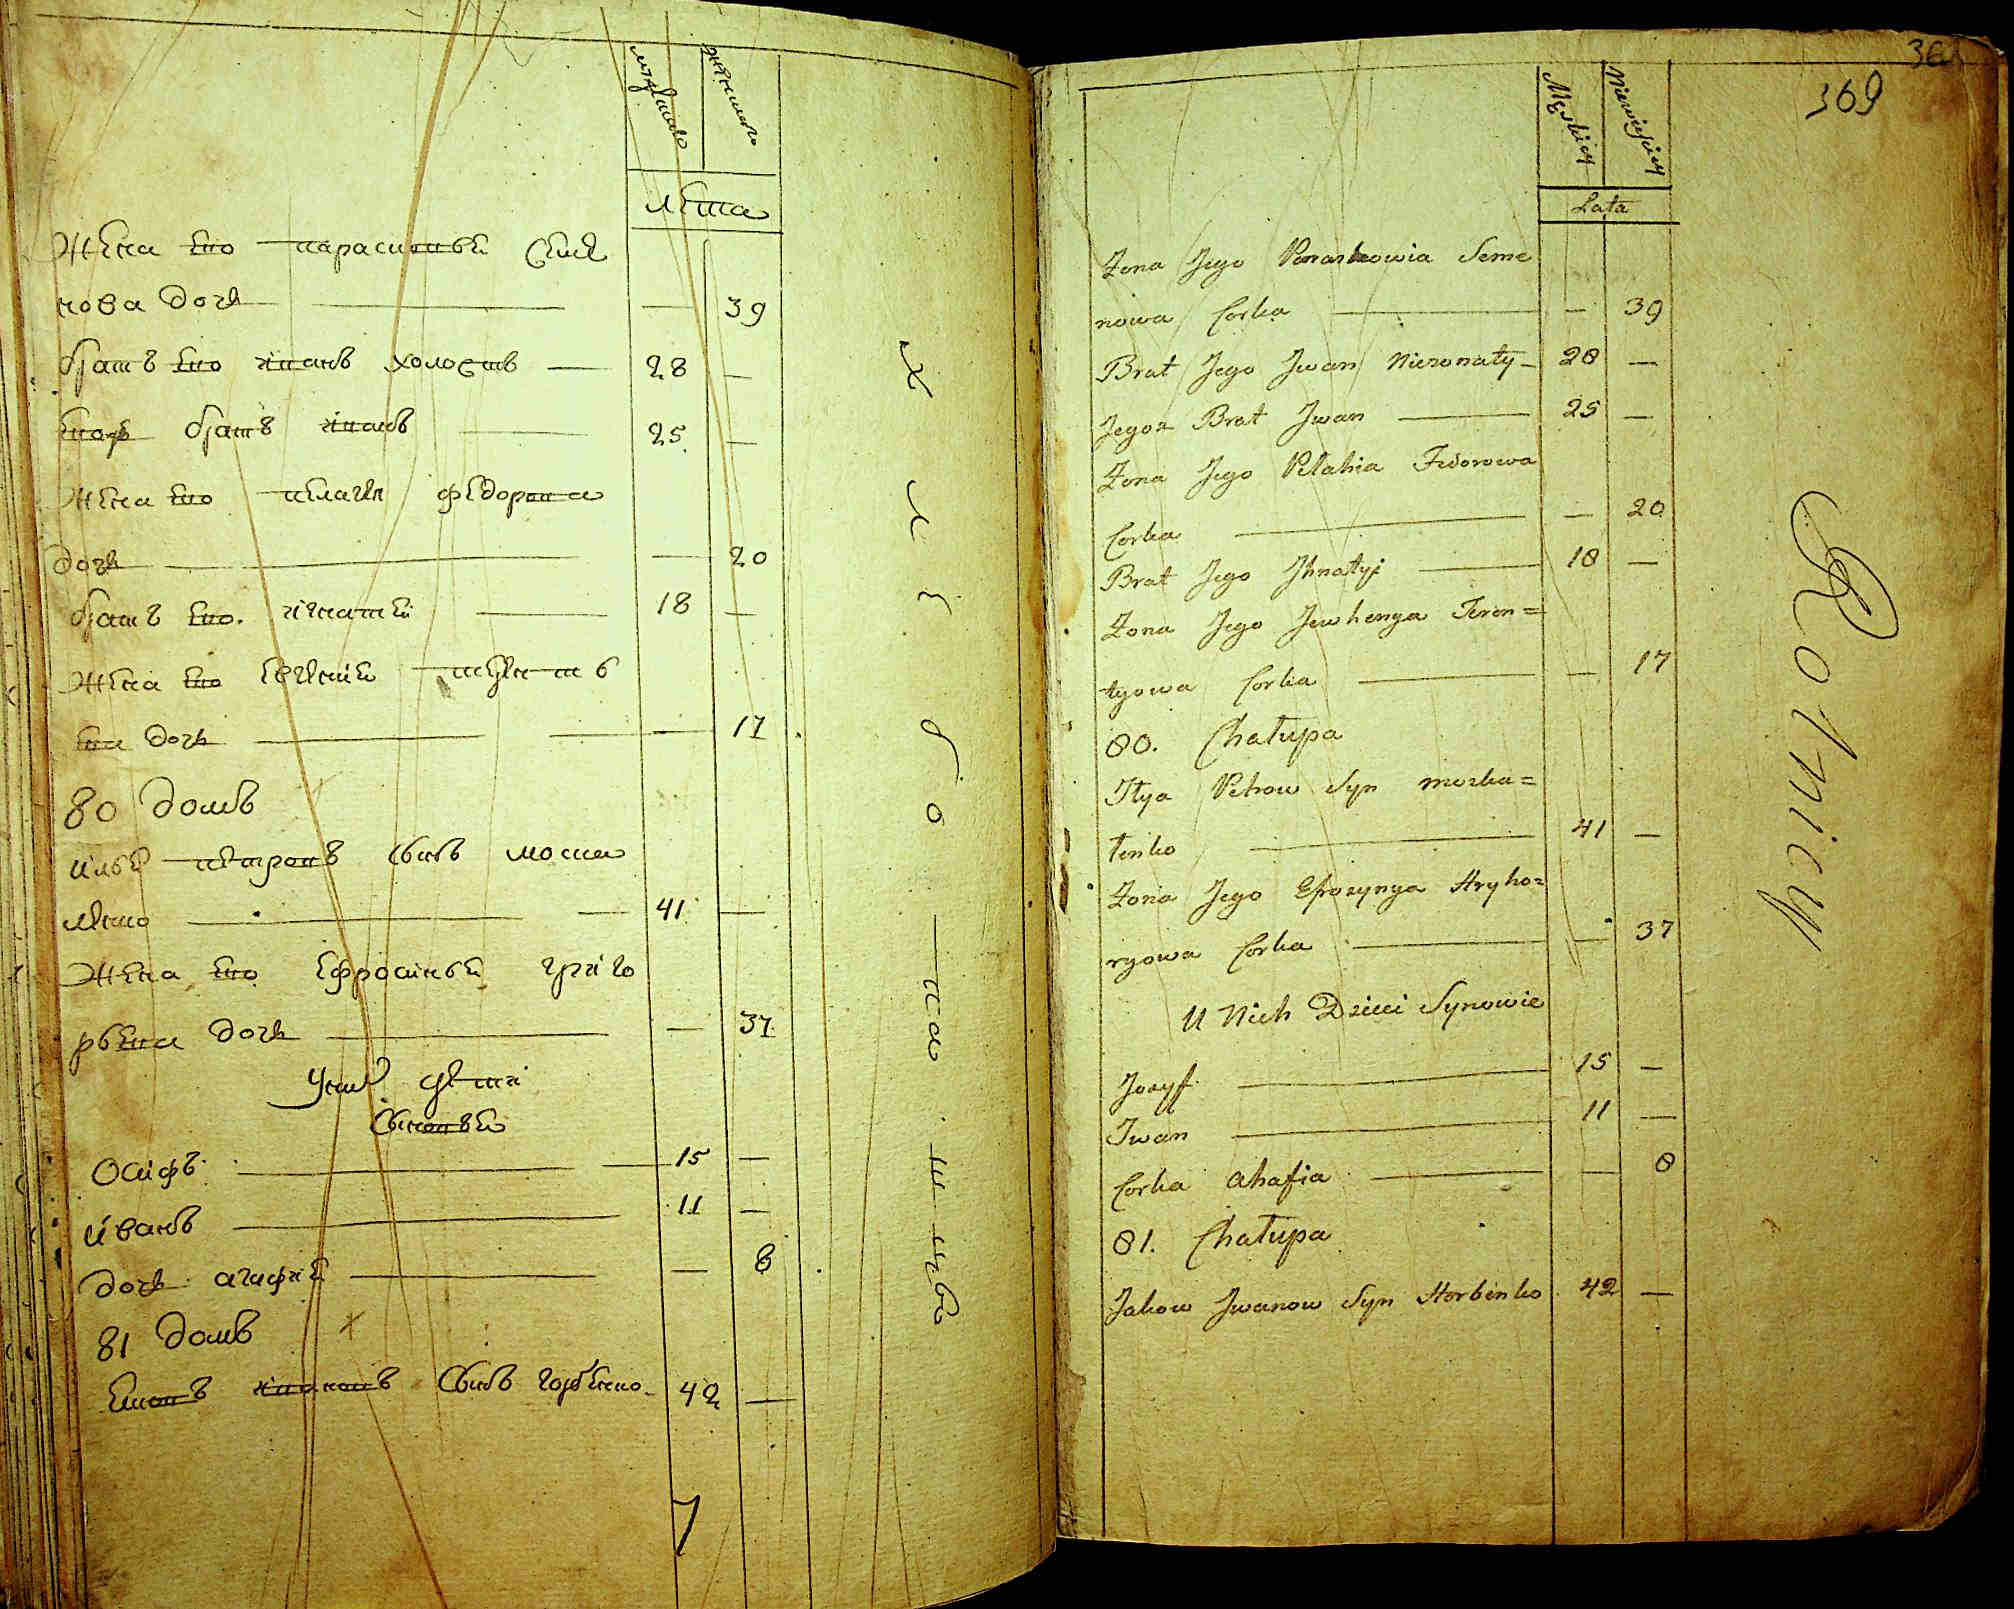 мужска
женска
лѣта
Жена его парасковѣя Семе
нова дочь — 39
братъ его иванъ холостъ — 28 —
егоръ братъ иванъ — 25 —
Жена его пелагея федорова
дочь — 20
братъ его игнатей — 18 —
Жена его евгенія
ева дочь — 17
80 домъ
илья петровъ сынъ моска
ленко — 41 —
Жена его ефросинья григо
рьева дочь — 37
У них дети
Сыновья
Осифъ — 15 —
иванъ — 11 —
дочь агафия — 8
81 домъ
сынъ горбенко 42 —
хлѣбопашцы
7
36
369
Męskiey
Niewieskiey
Lata
Żona Jego Paraskowia Seme
nowa Corka — — 39
Brat Jego Jwan Nieżonaty — 28 —
Jegor Brat Jwan — 25 —
Żona Jego Pelahia Fedorowa
Corka — — 20
Brat Jego Jhnatyi — 18 —
Żona Jego Jewhenya Teren=
tyowa Corka — — 17
80. Chałupa
Jłya Petrow Syn moska=
lenko — 41 —
Żona Jego Efrozynya Hryho=
ryowa Corka — — 37
U Nich Dzieci Synowie
Jozyf — 15 —
Jwan — 11 —
Corka Ahafia — — 8
81. Chałupa
Jakow Jwanow Syn Horbenko 42 —
Rolnicy